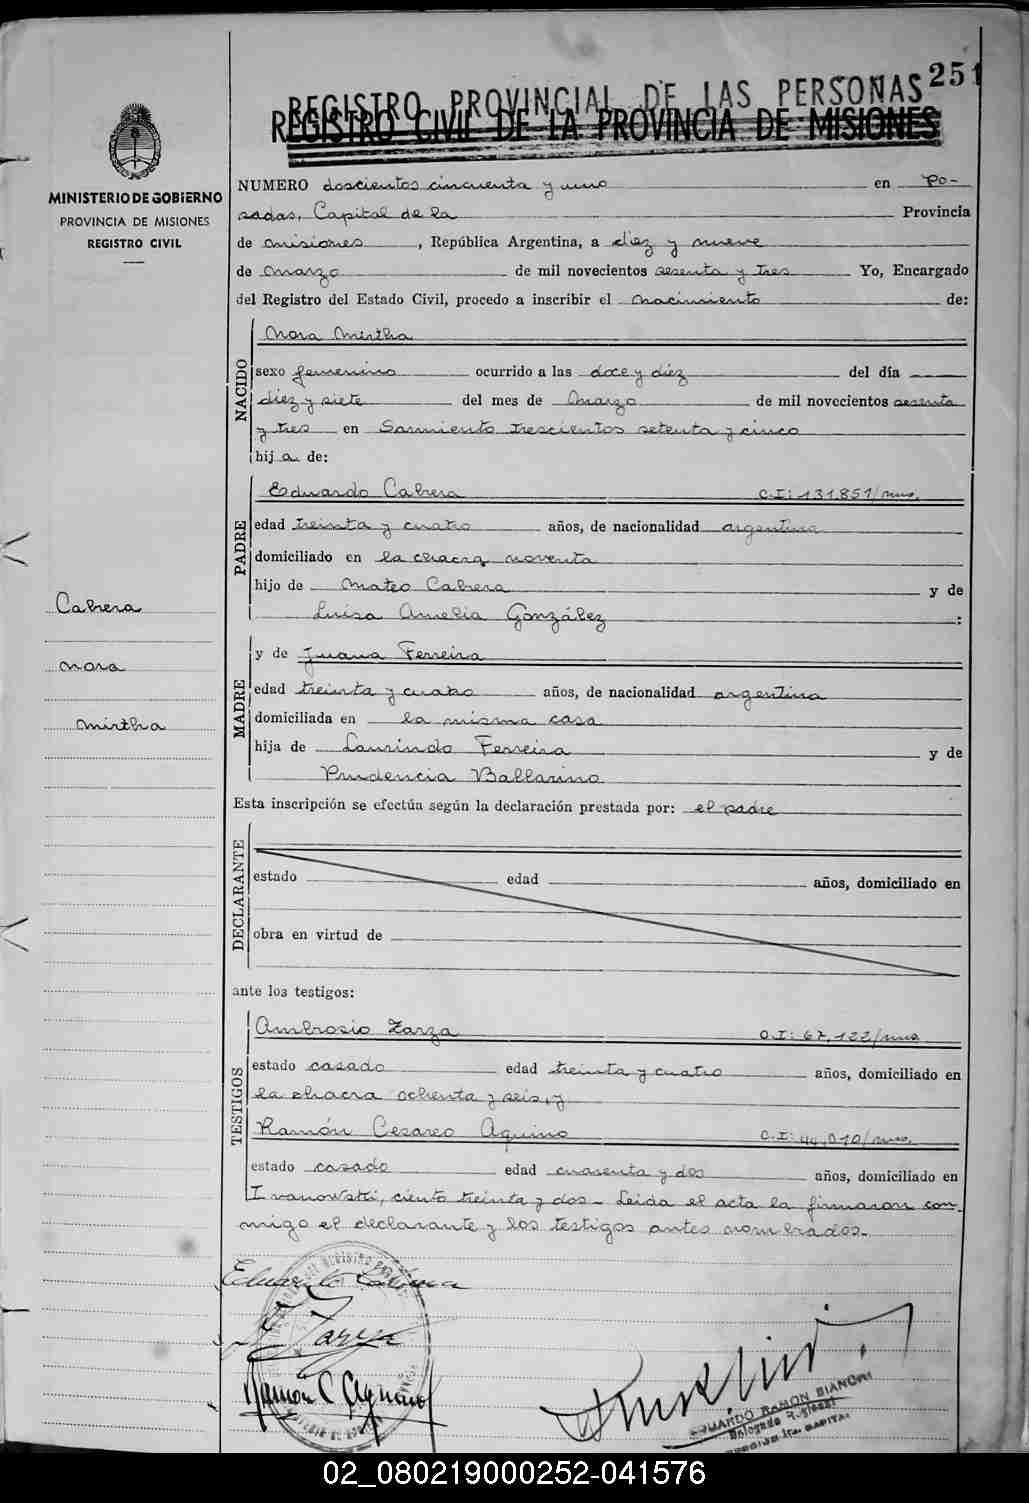 251
REGISTRO PROVINCIAL DE LAS PERSONAS
REGISTRO CIVIL DE LA PROVINCIA DE MISIONES
MINISTERIO DE GOBIERNO
PROVINCIA DE MISIONES
REGISTRO CIVIL
NUMERO doscientos cincuenta y uno en Po-
sadas, Capital de la Provincia
de Misiones, República Argentina, a diez y nueve
de Marzo de mil novecientos sesenta y tres Yo, Encargado
del Registro del Estado Civil, procedo a inscribir el Nacimiento de:
NACIDO
Nora Mirtha
sexo femenino ocurrido a las doce y diez del día
diez y siete del mes de Marzo de mil novecientos sesenta
y tres en Sarmiento trescientos setenta y cinco
hija de:
PADRE
Eduardo Cabrera C.I: 131.851/mnes.
edad treinta y cuatro años, de nacionalidad argentina
domiciliado en la chacra noventa
hijo de Mateo Cabrera y de
Luisa Amelia González :
MADRE
y de Juana Ferreira
edad treinta y cuatro años, de nacionalidad argentina
domiciliada en la misma casa
hija de Laurindo Ferreira y de
Prudencia Ballarino
Cabrera
Nora
Mirtha
Esta inscripción se efectúa según la declaración prestada por: el padre
DECLARANTE
estado edad años, domiciliado en
obra en virtud de
ante los testigos:
TESTIGOS
Ambrosio Zarza C.I: 67.122/mnes
estado casado edad treinta y cuatro años, domiciliado en
la chacra ochenta y seis, y
Ramón Cesareo Aquino C.I: 44.010/mnes.
estado casado edad cuarenta y dos años, domiciliado en
Ivanowski, ciento treinta y dos- Leida el acta la firmaron con-
migo el declarante y los testigos antes nombrados.-
Eduardo Cabrera
A Zarza
Ramón C Aquino
EDUARDO RAMON BIANCHI
Delegado Regional
02_080219000252-041576